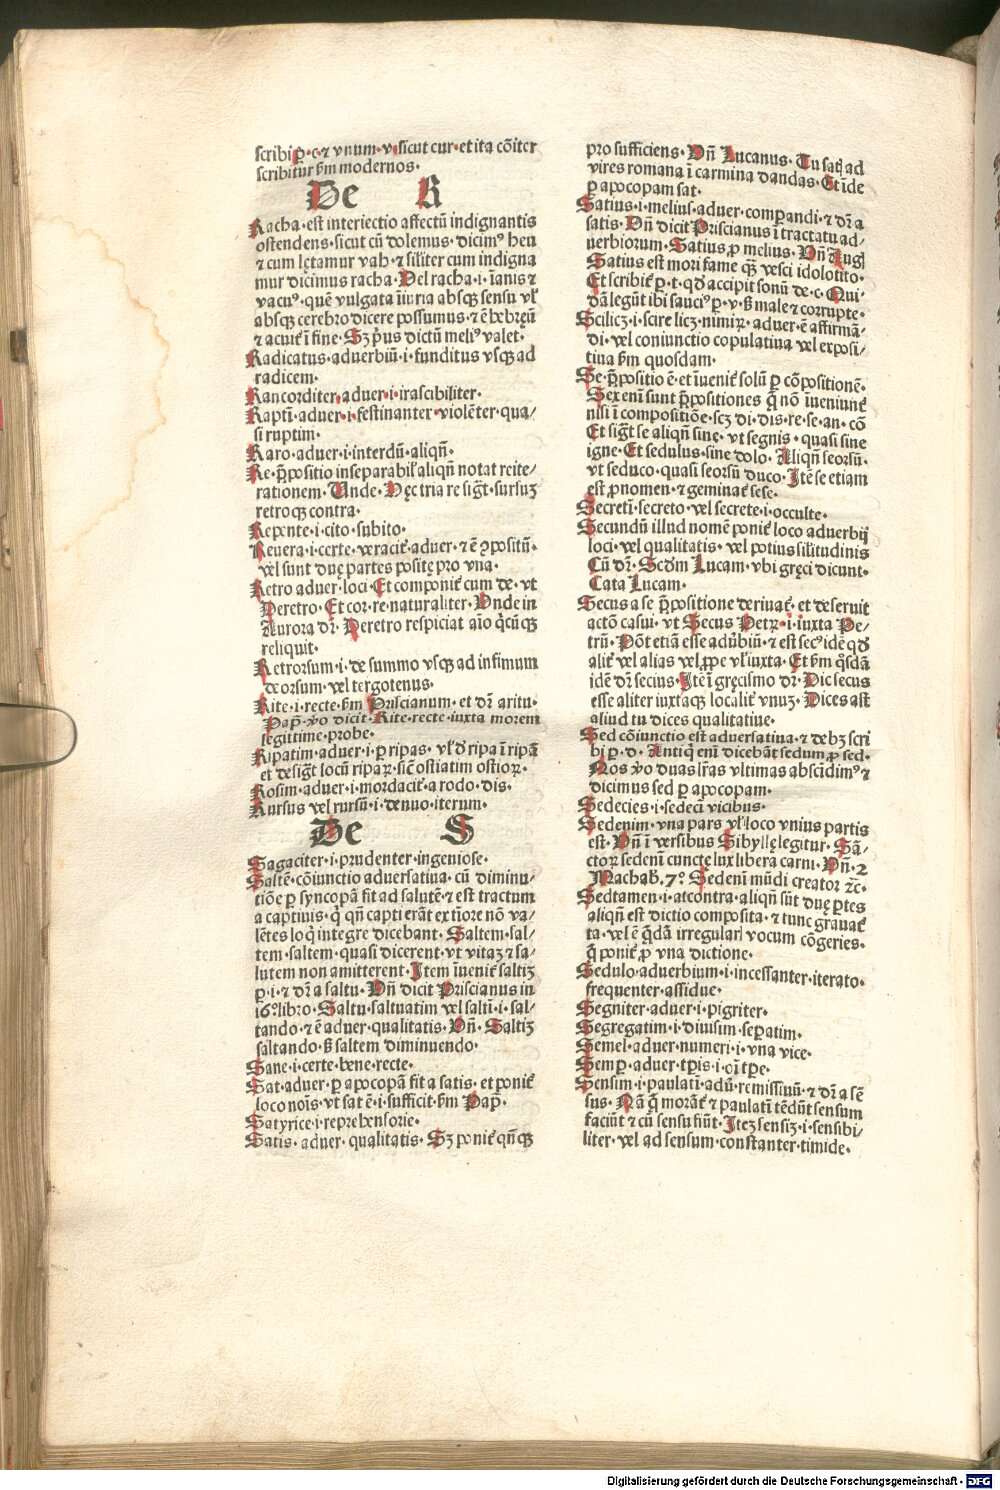 scribi ꝑ·c·⁊ vnum·v·sicut cur·et ita cōiter
scribitur ẜm modernos·
De R
Racha·est interiectio affectū indignantis
ostendens·sicut cū dolemus·dicimꝰ heu
⁊ cum lętamur vah·⁊ siliter cum indigna
mur dicimus racha·Vel racha·i·īanis ⁊
vacuꝰ·quē vulgata īiuria absqꝫ sensu vl̓
absqꝫ cerebro dicere possumus·⁊ ē hebręū
⁊ acuit̓ ī fine·Sꝫ p̓us dictū meliꝰ valet·
Radicatus·aduerbiū·i·funditus vsqꝫ ad
radicem·
Rancorditer·aduer·i·irascibiliter·
Raptī·aduer·i·festinanter·violēter·qua/
si ruptim·
Raro·aduer·i·interdū·aliqn̄·
Re·p̄positio inseparabil̓ aliqn̄ notat reite/
rationem·Unde·Hęc tria re sigt̄·sursuꝫ
retroqꝫ contra·
Repente·i·cito·subito·
Reuera·i·certe·veracit̓·aduer·⁊ ē ꝯpositū·
vel sunt duę partes positę pro vna·
Retro aduer·loci·Et componit̓ cum de·vt
Deretro·Et cor·re·naturaliter·Vnde in
Aurora dr̄·Deretro respiciat aīo q̓cūqꝫ
reliquit·
Retrorsum·i·de summo vsqꝫ ad infimum
deorsum·vel tergotenus·
Rite·i·recte·ẜm Priscianum·et dr̄ a ritu·
Pap̄·v̓o dicit·Rite·recte·iuxta morem
legittime·probe·
Ripatim·aduer·i·ꝑ ripas·vl̓ d̓ ripa ī ripā
et desigt̄ locū ripaꝝ·sic̄ ostiatim ostioꝝ·
Rosim·aduer·i·mordacit̓·a rodo·dis·
Rursus vel rursū·i·denuo·iterum·
De S
Sagaciter·i·prudenter·ingeniose·
Saltē·cōiunctio aduersatiua·cū diminu/
tiōe ꝑ syncopā fit ad salutē·⁊ est tractum
a captiuis·q̓ qn̄ capti erāt ex tīore nō va/
lētes loq̓ integre dicebant·Saltem·sal/
tem·saltem·quasi dicerent·vt vitaꝫ ⁊ sa/
lutem non amitterent·Item īuenit̓ saltiꝫ
ꝑ·i·⁊ dr̄ a saltu·Vn̄ dicit Priscianus in
16°·libro·Saltu·saltuatim vel saltī·i·sal/
tando·⁊ ē aduer·qualitatis·Vn̄·Saltiꝫ
saltando·ẜ saltem diminuendo·
Sane·i·certe·bene·recte·
Sat·aduer·ꝑ apocopā fit a satis·et ponit̓
loco nois·vt sat ē·i·sufficit·ẜm Pap̄·
Satyrice·i·reprehensorie·
Satis·aduer·qualitatis·Sꝫ ponit̓ qn̄qꝫ
pro sufficiens·Vn̄ Lucanus·Tu satꝭ ad
vires romana ī carmina dandas·Et īde
ꝑ apocopam sat·
Satius·i·melius·aduer·comꝑandi·⁊ dr̄ a
satis·Vn̄ dicit Priscianus ī tractatu ad/
uerbiorum·Satius ꝓ melius·Vn̄ Aug̓
Satius est mori fame qꝫ̄ vesci idolotito·
Et scribit̓ ꝑ·t·qd̓ accipit sonū de·c·Qui/
dā legūt ibi sauciꝰ ꝑ·v·ẜ male ⁊ corrupte·
Scilicꝫ·i·scire licꝫ·nimiꝝ·aduer·ē affirmā/
di·vel coniunctio copulatiua vel exposi/
tiua ẜm quosdam·
Se·p̄positio ē·et īuenit̓ solū ꝑ cōpositionē·
Sex eni sunt p̄positiones q̄ nō īueniunt̓
nisi ī compositiōe·scꝫ di·dis·re·se·an·cō
Et sigt̄ se aliqn̄ sine·vt segnis·quasi sine
igne·Et sedulus·sine dolo·Aliqn̄ seorsū·
vt seduco·quasi seorsū duco·Itē se etiam
est ꝓnomen·⁊ geminat̓ sese·
Secretī·secreto·vel secrete·i·occulte·
Secundū illud nomē ponit̓ loco aduerbij
loci·vel qualitatis·vel potius silitudinis
Cū dr̄·Scd̓m Lucam·vbi gręci dicunt·
Cata Lucam·
Secus a se p̄positione deriuat̓·et deseruit
actō casui·vt Secus Petꝝ·i·iuxta Pe/
trū·Pōt etiā esse adūbiū·⁊ est secꝰ idē qd̓
alit̓ vel alias vel ꝓpe vl̓ iuxta·Et ẜm q̓sdā
idē dr̄ secius·Itē ī gręcismo dr̄·Dic secus
esse aliter iuxtaqꝫ localit̓ vnuꝫ·Dices ast
aliud tu dices qualitatiue·
Sed cōiunctio est aduersatiua·⁊ debꝫ scri
bi ꝑ·d·Antiq̓ eni dicebāt sedum ꝓ sed·
Nos v̓o duas lr̄as vltimas abscidimꝰ ⁊
dicimus sed ꝑ apocopam·
Sedecies·i·sedecī vicibus·
Sedenim·vna pars vl̓ loco vnius partis
est·Vn̄ ī versibus Sibyllę legitur·Sā/
ctoꝝ sedenī cuncte lux libera carni·Vn̄·2
Machab̓·7°·Sedenī mūdi creator ⁊c̄·
Sedtamen·i·atcontra·aliqn̄ sūt duę ꝑtes
aliqn̄ est dictio composita·⁊ tunc grauat̓
ta·vel ē q̄dā irregulari vocum cōgeries·
q̄ ponit̓ ꝓ vna dictione·
Sedulo·aduerbium·i·incessanter·iterato·
frequenter·assidue·
Segniter·aduer·i·pigriter·
Segregatim·i·diuisim·seꝑatim·
Semel·aduer·numeri·i·vna vice·
Semꝑ·aduer·tꝑis·i·oī tꝑe·
Sensim·i·paulatī·adū·remissiuū·⁊ dr̄ a sē
sus·Nā q̄ morāt̓ ⁊ paulatī tēdūt sensum
faciūt ⁊ cū sensu fiūt·Iteꝫ sensiꝫ·i·sensibi/
liter·vel ad sensum·constanter·timide·
Digitalisierung gefördert durch die Deutsche Forschungsgemeinschaft - DFG